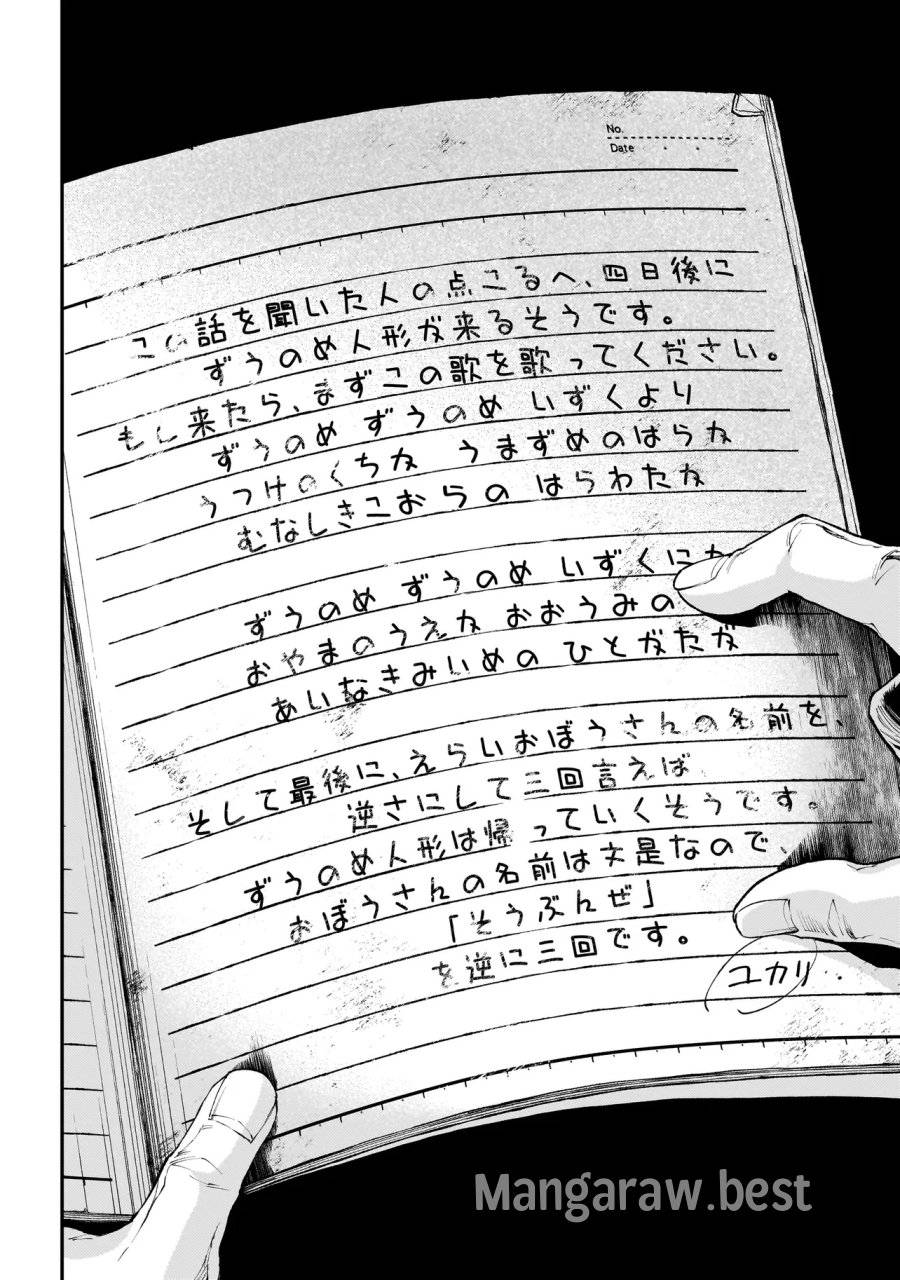 No.
Date
この話を聞いた人の点こるへ、四日後に
ずうのめ人形が来るそうです。
もし来たら、まずこの歌を歌ってください。
ずうのめ ずうのめ いずくより
うつけのくちか うまずめのはらか
むなしきこおらの はらわたか
ずうのめ ずうのめ いずくにか
おやまのうえか おおうみの
あいなきみいめの ひとがたが
そして最後に、えらいおぼうさんの名前を、
逆さにして三回言えば
ずうのめ人形は帰っていくそうです。
おぼうさんの名前は文是なので、
「そうぶんぜ」
を逆に三回です。
ユカリ
Mangaraw.best